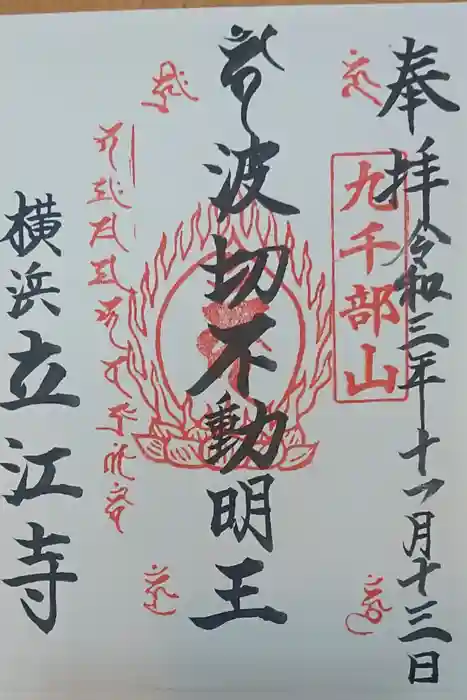 奉拝令和三年十一月十三日
九千部山
波切不動明王
横浜立江寺